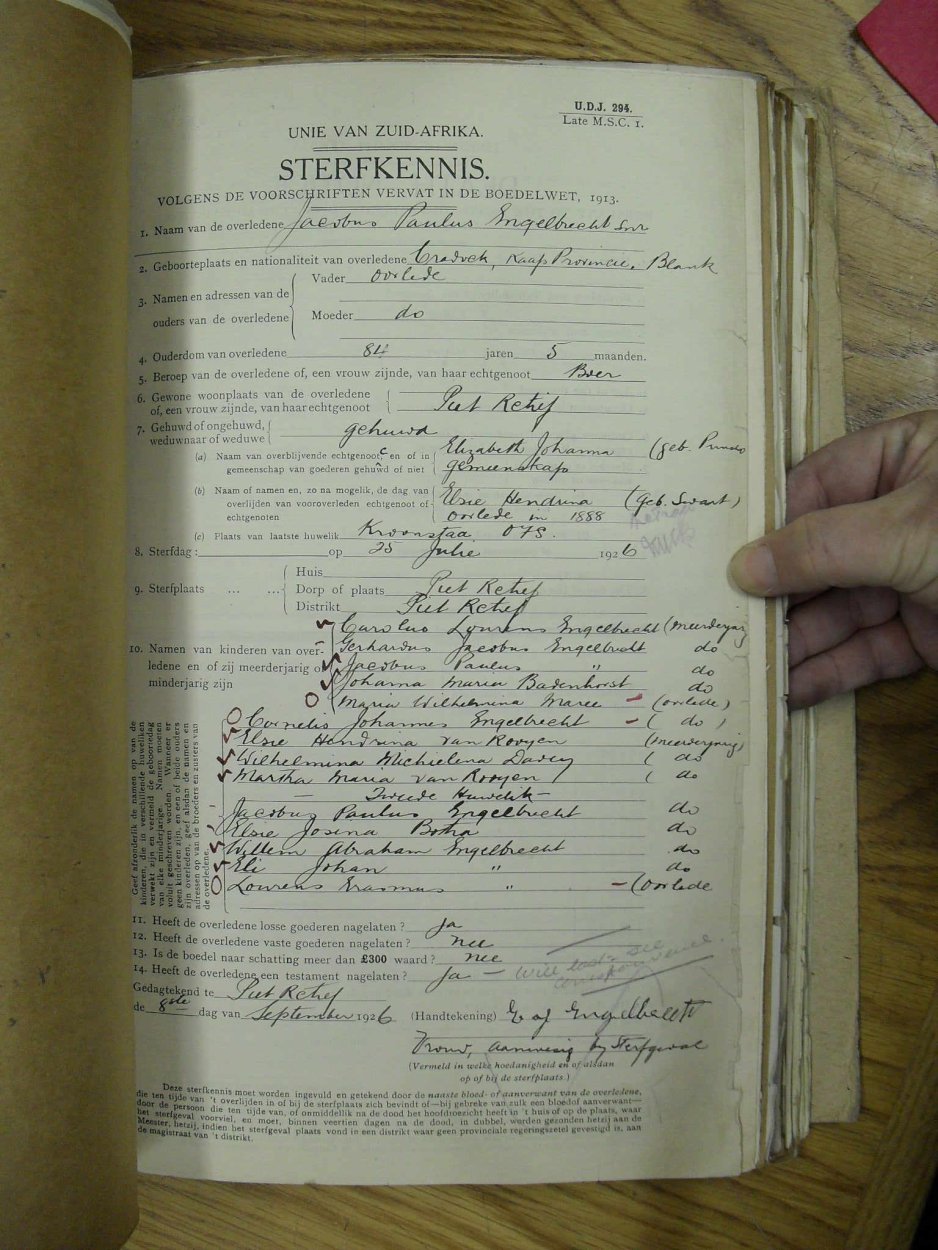 U.D.J. 294.
Late M.S.C. 1.
UNIE VAN ZUID-AFRIKA.
STERFKENNIS.
VOLGENS DE VOORSCHRIFTEN VERVAT IN DE BOEDELWET, 1913.
1. Naam van de overledene Jacobus Paulus Engelbrecht Snr
2. Geboorteplaats en nationaliteit van overledene Cradock, Kaap Provincie. Blank
3. Namen en adressen van de ouders van de overledene
Vader overlede
Moeder do
4. Ouderdom van overledene 84 jaren 5 maanden.
5. Beroep van de overledene of, een vrouw zijnde, van haar echtgenoot Boer
6. Gewone woonplaats van de overledene
of, een vrouw zijnde, van haar echtgenoot Piet Retief
7. Gehuwd of ongehuwd,
weduwnaar of weduwe gehuwd
(a) Naam van overblijvende echtgenoot, en of in Elizabeth Johanna (geb.
gemeenschap van goederen gehuwd of niet gemeenskap
(b) Naam of namen en, zo na mogelik, de dag van Elsie Hendrina (geb. Swart)
overlijden van vooroverleden echtgenoot of overlede in 1888
echtgenoten
(c) Plaats van laatste huwelik Kroonstad OFS.
8. Sterfdag: op 25 Julie 1926
9. Sterfplaats ... ...
Huis
Dorp of plaats Piet Retief
Distrikt Piet Retief
10. Namen van kinderen van overledene en of zij meerderjarig of minderjarig zijn
Carolus Lourens Engelbrecht (meerderjarig
Gerhardus Jacobus Engelbrecht do
Jacobus Paulus " do
Johanna Maria Badenhorst do
Maria Wilhelmina Maree - (overlede)
Cornelis Johannes Engelbrecht - ( do )
Elsie Hendrina van Rooyen (meerderjarig)
Wilhelmina Michielena Davey ( do
Martha Maria van Rooyen ( do
— Tweede Huwelik —
Jacobus Paulus Engelbrecht do
Elsie Josina Botha do
Willem Abraham Engelbrecht do
Eli Johan " do
Lourens Erasmus " - (overlede
Geef afzonderlik de namen op van de
kinderen, die in verschillende huweliken
verwekt zijn en vermeld de geboortedag
van elke minderjarige. Namen moeten
voluit geschreven worden. Wanneer er
geen kinderen zijn, en een of beide ouders
zijn overleden, geef alsdan de namen en
adressen op van de broeders en zusters van
de overledene.
11. Heeft de overledene losse goederen nagelaten? Ja
12. Heeft de overledene vaste goederen nagelaten? nee
13. Is de boedel naar schatting meer dan £300 waard? nee
14. Heeft de overledene een testament nagelaten? Ja — Will see
Gedagtekend te Piet Retief
de 8ste dag van September 1926 (Handtekening) E J Engelbrecht
Vrouw, aanwesig by sterfgeval
(Vermeld in welke hoedanigheid en of alsdan
op of bij de sterfplaats.)
Deze sterfkennis moet worden ingevuld en getekend door de naaste bloed- of aanverwant van de overledene,
die ten tijde van 't overlijden in of bij de sterfplaats zich bevindt of—bij gebreke van zulk een bloed of aanverwant—
door de persoon die ten tijde van, of onmiddellik na de dood het hoofdtoezicht heeft in 't huis of op de plaats, waar
het sterfgeval voorviel, en moet, binnen veertien dagen na de dood, in dubbel, worden gezonden hetzij aan de
Meester, hetzij, indien het sterfgeval plaats vond in een distrikt waar geen provinciale regeringszetel gevestigd is, aan
de magistraat van 't distrikt.